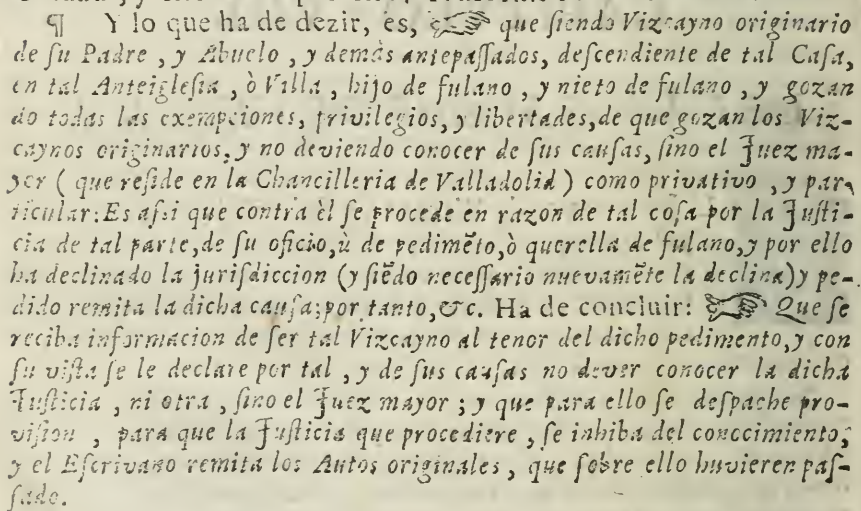 ¶ Y lo que ha de dezir, es, ☞ que ſiendo Vizcayno originario
de ſu Padre, y Abuelo, y demàs antepaſſados, deſcendiente de tal Caſa,
en tal Anteigleſia, ò Villa, hijo de fulano, y nieto de fulano, y gozan
do todas las exempciones, privilegios, y libertades, de que gozan los Viz-
caynos originarios, y no deviendo conocer de ſus cauſas, ſino el Juez ma-
yor (que reſide en la Chancilleria de Valladolid) como privativo, y par-
ticular: Es aſsi que contra èl ſe procede en razon de tal coſa por la Juſti-
cia de tal parte, de ſu oficio, ù de pedimẽto, ò querella de fulano, y por ello
ha declinado la juriſdiccion (y ſiẽdo neceſſario nuevamẽte la declina) y pe-
dido remita la dicha cauſa; por tanto, &c. Ha de concluir: ☞ Que ſe
reciba informacion de ſer tal Vizcayno al tenor del dicho pedimento, y con
ſu viſta ſe le declare por tal, y de ſus cauſas no dever conocer la dicha
Juſticia, ni otra, ſino el Juez mayor; y que para ello ſe deſpache pro-
viſion, para que la Juſticia que procediere, ſe inhiba del conocimiento,
y el Eſcrivano remita los Autos originales, que ſobre ello huvieren paſ-
ſado.